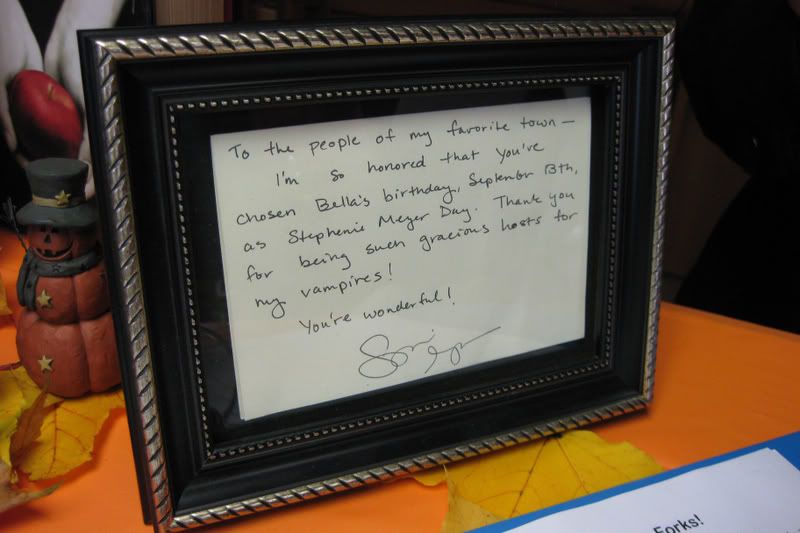 To the people of my favorite town —
I'm so honored that you've
chosen Bella's birthday, September 13th,
as Stephenie Meyer Day. Thank you
for being such gracious hosts for
my vampires!
You're wonderful!
Forks!